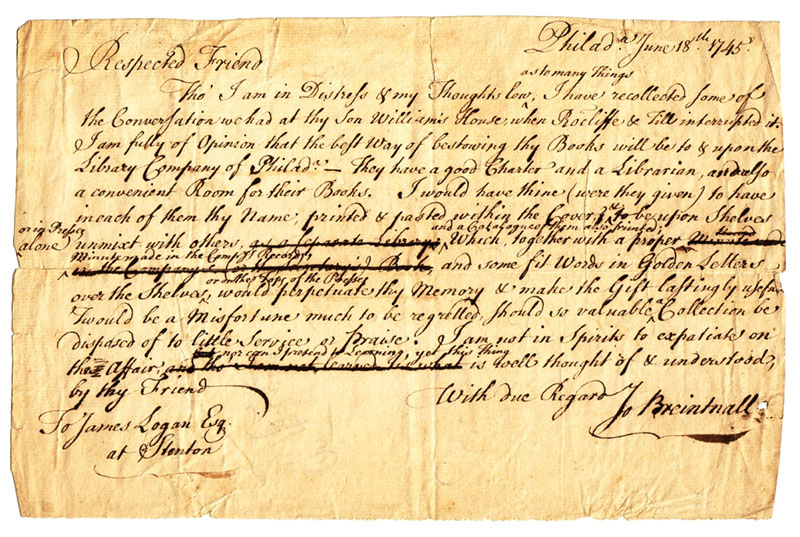 Philad.ª June 18.th 1745.
Respected Friend
as to many Things
Tho' I am in Distress & my Thoughts low, I have recollected some of
the Conversation we had at thy Son William's House, when Rocliffe & Till interrupted it.
I am fully of Opinion that the best Way of bestowing thy Books will be to & upon the
Library Company of Philad.ª — They have a good Charter and a Librarian, and also
a convenient Room for their Books. I would have thine (were they given) to have
in each of them thy Name, printed & pasted within the Cover; & to be upon Shelves
or in Presses and a Catalogue of them also printed;
alone unmixt with others, as a Separate Library; Which, together with a proper
Minute made in the Comp.ys Records,
in the Company's Books, and some fit Words in Golden Letters
or on the Tops of the Presses
over the Shelves, would perpetuate thy Memory & make the Gift lastingly useful.
'Twould be a Misfortune much to be regretted, should so valuable a Collection be
disposed of to little Service or Praise. I am not in Spirits to expatiate on
nor can I pretend to Learning, yet this Thing
the Affair, and tho' I am not learned is well thought of & understood,
by thy Friend
With due Regard Jo Breintnall
To James Logan Esq.
at Stenton